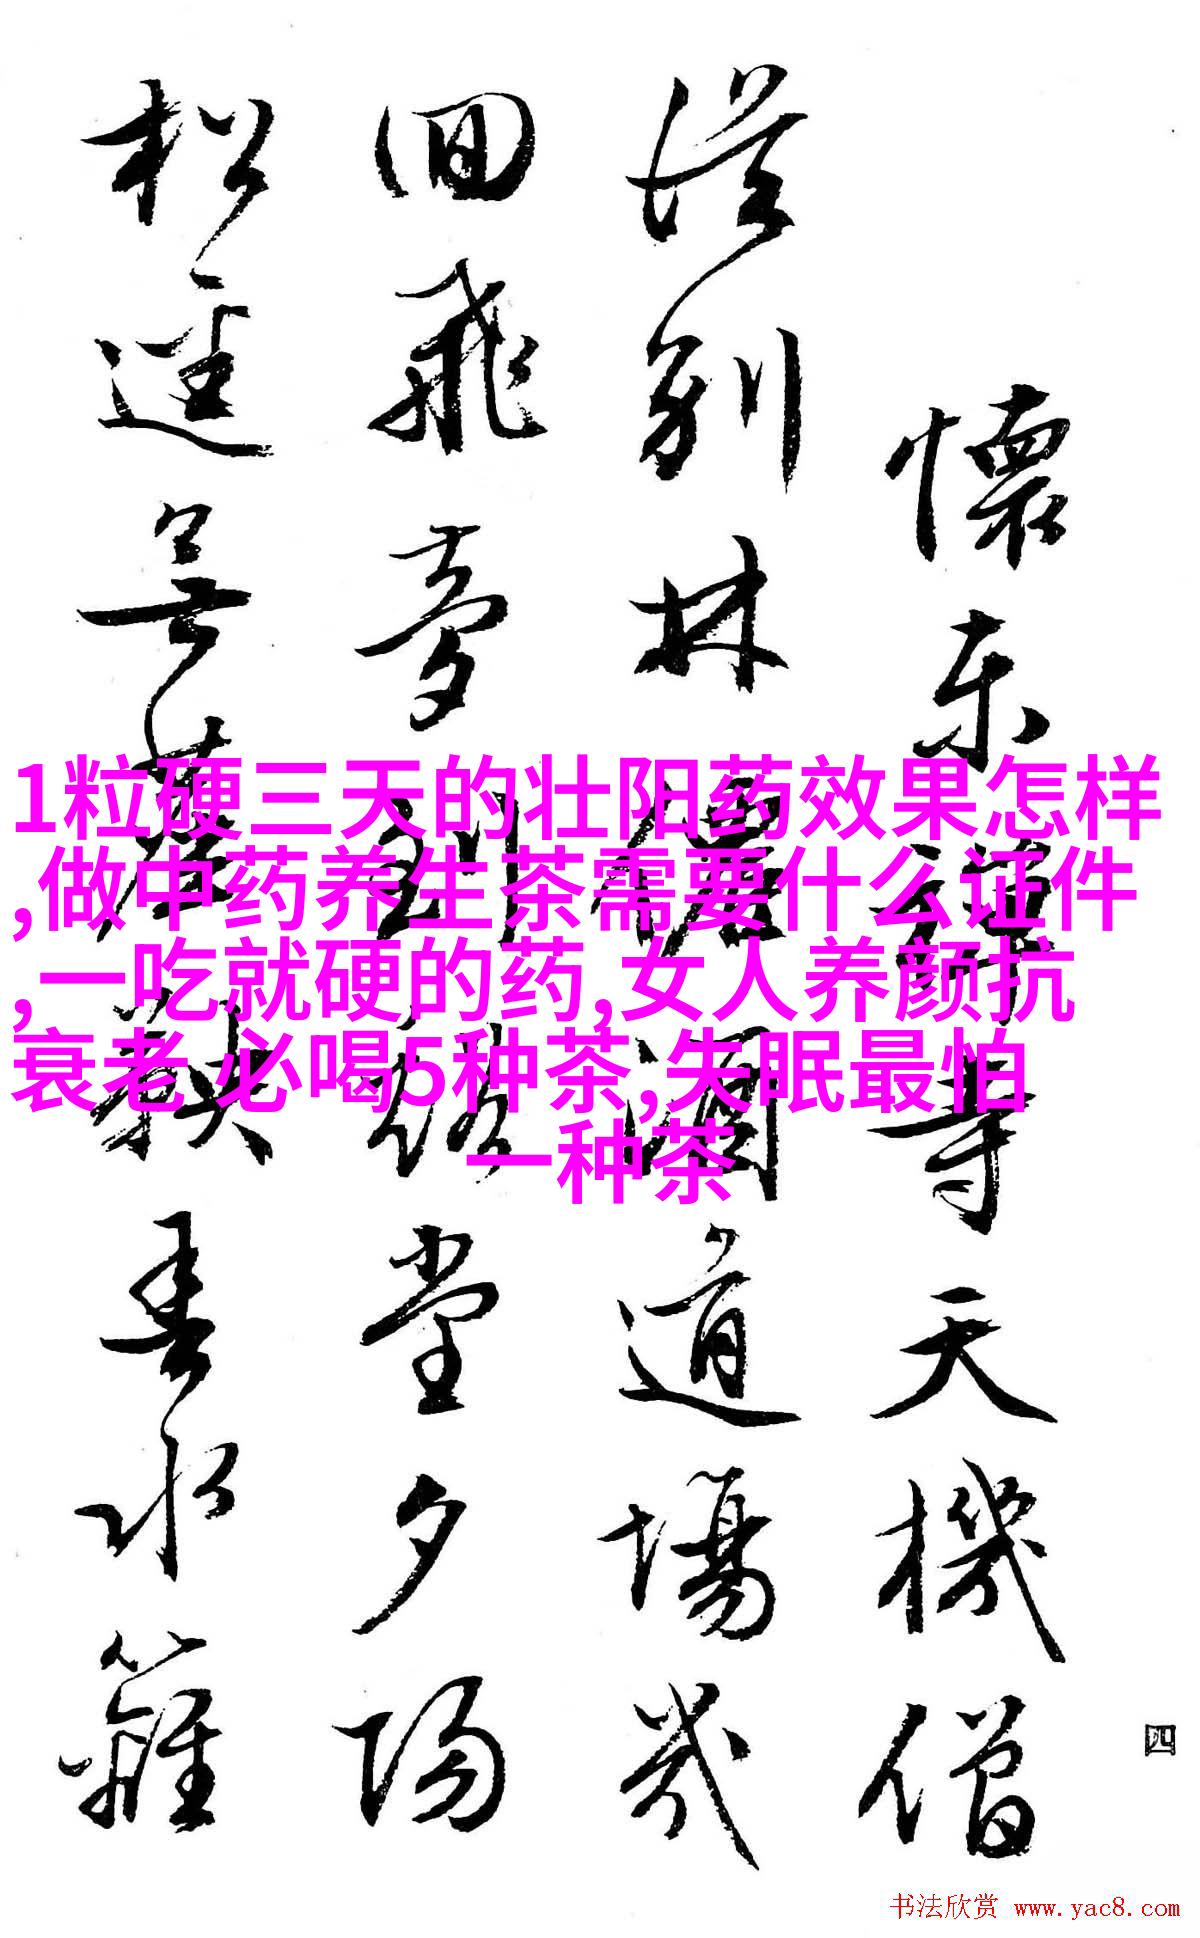 懷東禪寺天機僧
從別林僊闢道場幾
回飛夢到
堂夕陽
松逕無
春水籬
四
1粒硬三天的壮阳药效果怎样
,做中药养生茶需要什么证件
,一吃就硬的药,女人养颜抗
衰老必喝5种茶,失眠最怕
一种茶
书法欣赏 www.yac8.com